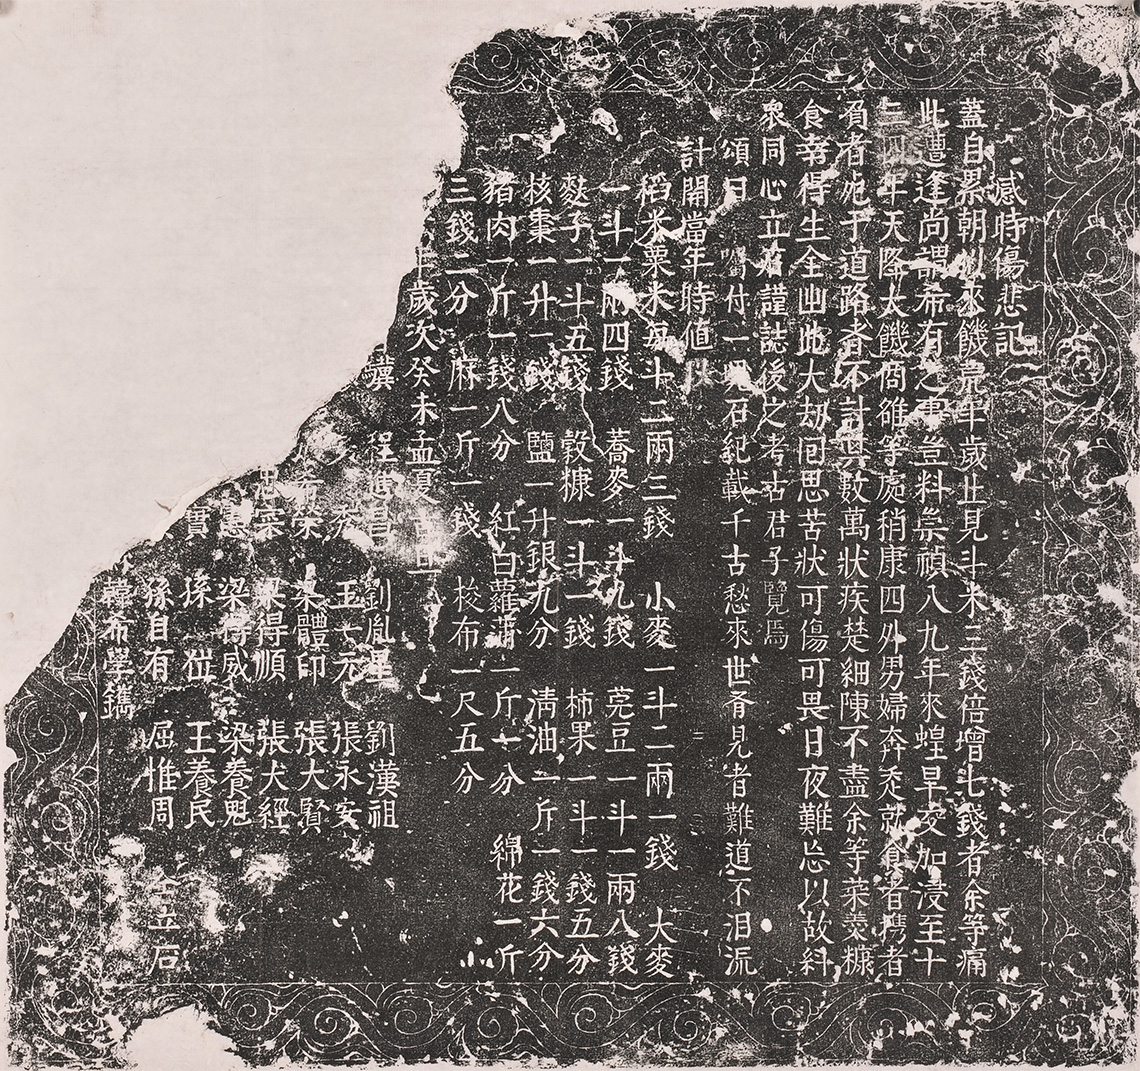 感時傷悲記
蓋自累朝以來饑荒年歲止見斗米三錢倍增七錢者余等痛
此遭逢尚謂希有之事豈料崇禎八九年來蝗旱交加浸至十
三四年天降大饑商雒等處稍康四外男婦奔走就食者攜者
負者死于道路者不計其數萬狀疾楚細陳不盡余等菜羹糠
食幸得生全幽此大劫回思苦狀可傷可畏日夜難忘以故糾
眾同心立石謹誌後之考古君子覽焉
頌曰 囑付一塊石紀載千古愁來世看見者難道不泪流
計開當年時值
稻米粟米每斗二兩三錢 小麥一斗二兩一錢 大麥
一斗一兩四錢 蕎麥一斗九錢 莞豆一斗一兩八錢
麩子一斗五錢 穀糠一斗一錢 柿果一斗一錢五分
核棗一升一錢 鹽一升銀九分 清油一斤一錢六分
猪肉一斤一錢八分 紅白蘿蔔一斤一分 綿花一斤
三錢二分 麻一斤一錢 梭布一尺五分 小
年歲次癸未孟夏吉旦
驥 程進自 劉胤星 劉漢祖
王七元 張永安
希宋 朱體印 張大賢
忠宋 梁得順 張犬經
梁得威 梁養魁
實 孫 王養民
孫自有 屈惟周 仝立石
韓希學鐫